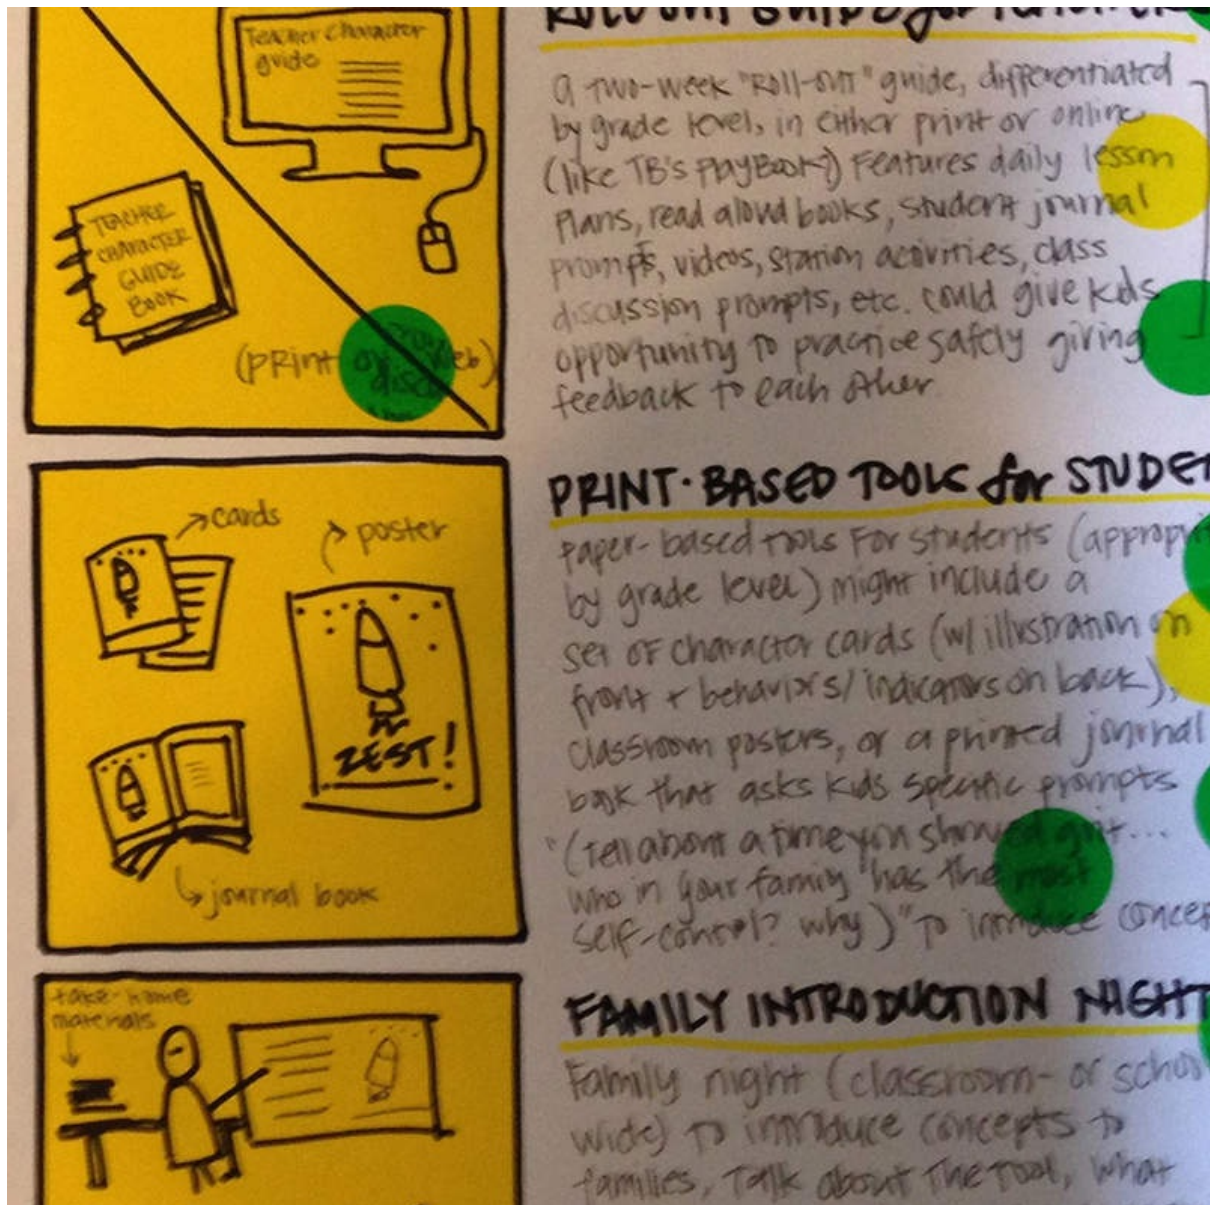 Teacher Character
guide
TEACHER
CHARACTER
GUIDE
BOOK
(print or web)
ROLL OUT GUIDE for
a two-week "Roll-out" guide, differentiated
by grade level, in either print or online
(like TB's PlayBook!) Features daily lesson
plans, read aloud books, student journal
prompts, videos, station activities, class
discussion prompts, etc. could give kids
opportunity to practice safely giving
feedback to each other.
cards
poster
ZEST!
journal book
PRINT-BASED TOOLS for STUDE
Paper-based tools for students (appropri
by grade level) might include a
set of character cards (w/ illustration on
front + behaviors/indicators on back),
classroom posters, or a printed journal
book that asks kids specific prompts
"(Tell about a time you showed grit...
who in your family has the most
self-control? why)" to introduce concep
take-home
materials
FAMILY INTRODUCTION NIGHT
Family night (classroom- or schoo
wide) to introduce concepts to
families, Talk about the tool, what